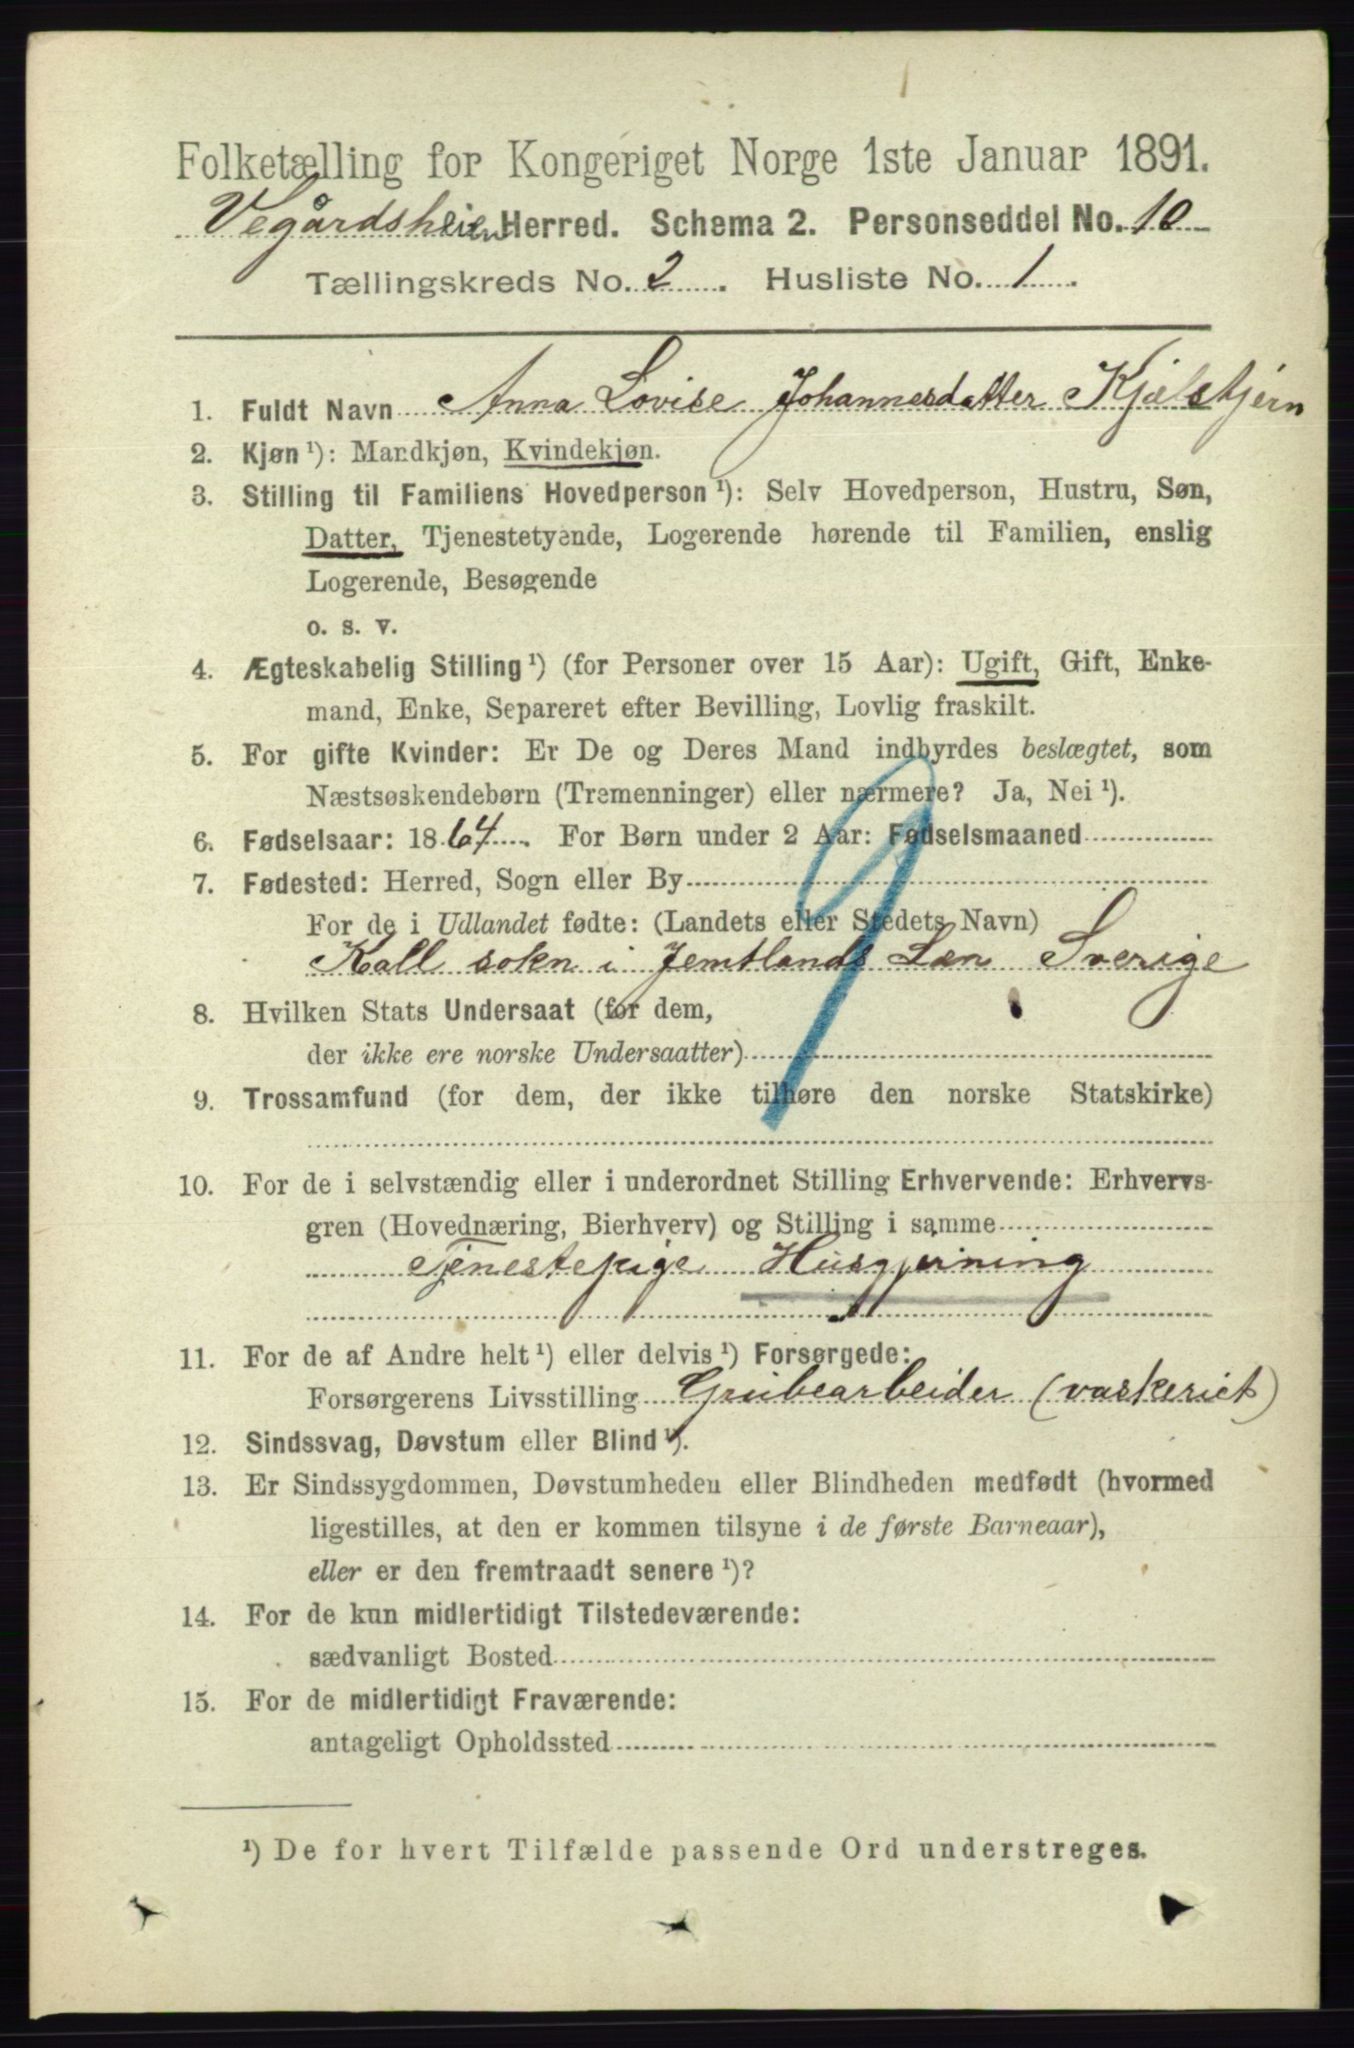 Folketælling for Kongeriget Norge 1ste Januar 1891.
Vegårdsheien Herred. Schema 2. Personseddel No. 10
Tællingskreds No. 2. Husliste No. 1.
1. Fuldt Navn Anna Lovise Johannesdatter Kjelstjern
2. Kjøn ¹): Mandkjøn, Kvindekjøn.
3. Stilling til Familiens Hovedperson ¹): Selv Hovedperson, Hustru, Søn,
Datter, Tjenestetyende, Logerende hørende til Familien, enslig
Logerende, Besøgende
o. s. v.
4. Ægteskabelig Stilling ¹) (for Personer over 15 Aar): Ugift, Gift, Enke-
mand, Enke, Separeret efter Bevilling, Lovlig fraskilt.
5. For gifte Kvinder: Er De og Deres Mand indbyrdes beslægtet, som
Næstsøskendebørn (Tremenninger) eller nærmere? Ja, Nei ¹).
6. Fødselsaar: 1864. For Børn under 2 Aar: Fødselsmaaned
7. Fødested: Herred, Sogn eller By
For de i Udlandet fødte: (Landets eller Stedets Navn)
Kall sokn i Jemtlands Læn Sverige
8. Hvilken Stats Undersaat (for dem,
der ikke ere norske Undersaatter)
9. Trossamfund (for dem, der ikke tilhøre den norske Statskirke)
9
10. For de i selvstændig eller i underordnet Stilling Erhvervende: Erhvervs-
gren (Hovednæring, Bierhverv) og Stilling i samme
Tjenestepige Husgjerning
11. For de af Andre helt ¹) eller delvis ¹) Forsørgede:
Forsørgerens Livsstilling Grubearbeider (vaskeriet)
12. Sindssvag, Døvstum eller Blind ¹).
13. Er Sindssygdommen, Døvstumheden eller Blindheden medfødt (hvormed
ligestilles, at den er kommen tilsyne i de første Barneaar),
eller er den fremtraadt senere ¹)?
14. For de kun midlertidigt Tilstedeværende:
sædvanligt Bosted
15. For de midlertidigt Fraværende:
antageligt Opholdssted
¹) De for hvert Tilfælde passende Ord understreges.